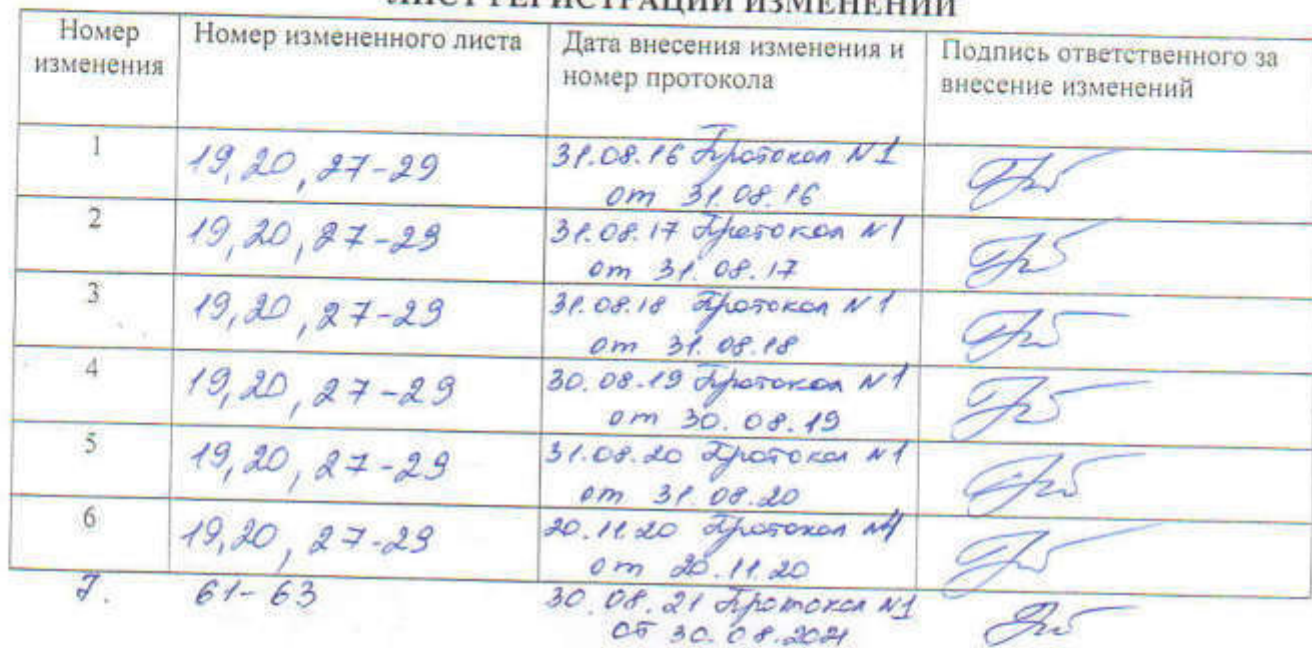 ЛИСТ РЕГИСТРАЦИИ ИЗМЕНЕНИЙ
Номер изменения
Номер измененного листа
Дата внесения изменения и номер протокола
Подпись ответственного за внесение изменений
1
19, 20, 27-29
31.08.16 Протокол N1
от 31.08.16
2
19, 20, 27-29
31.08.17 Протокол N1
от 31.08.17
3
19, 20, 27-29
31.08.18 Протокол N1
от 31.08.18
4
19, 20, 27-29
30.08.19 Протокол N1
от 30.08.19
5
19, 20, 27-29
31.08.20 Протокол N1
от 31.08.20
6
19, 20, 27-29
20.11.20 Протокол N4
от 20.11.20
7.
61-63
30.08.21 Протокол N1
от 30.08.2021